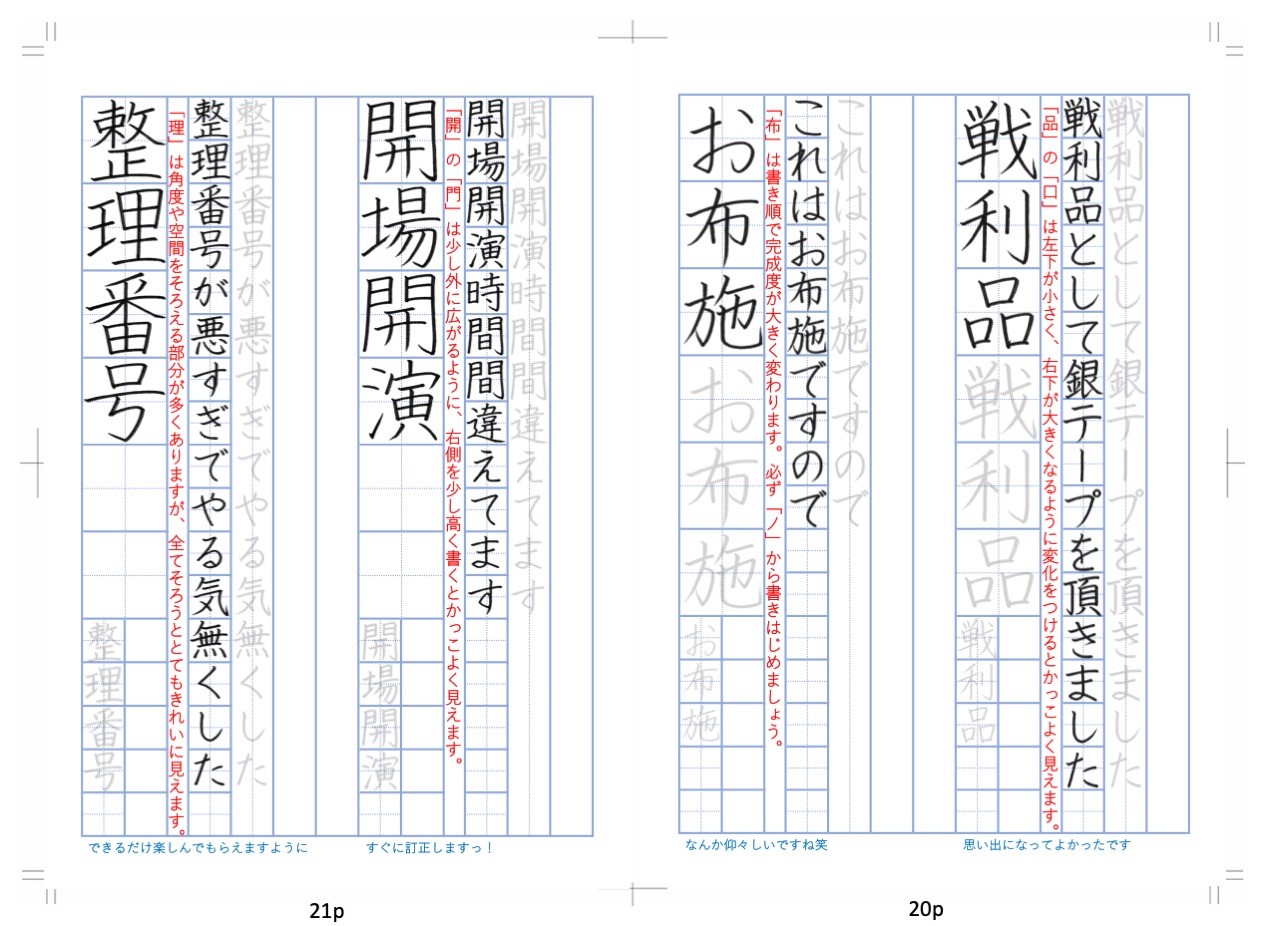 戦利品として銀テープを頂きました
戦利品として銀テープを頂きました
「品」の「口」は左下が小さく、右下が大きくなるように変化をつけるとかっこよく見えます。
戦利品戦利品
戦利品
思い出になってよかったです
これはお布施ですので
これはお布施ですので
「布」は書き順で完成度が大きく変わります。必ず「ノ」から書きはじめましょう。
お布施お布施
お布施
なんか仰々しいですね笑
20p
開場開演時間間違えてます
開場開演時間間違えてます
「開」の「門」は少し外に広がるように、右側を少し高く書くとかっこよく見えます。
開場開演
開場開演
すぐに訂正しますっ！
整理番号が悪すぎでやる気無くした
整理番号が悪すぎでやる気無くした
「理」は角度や空間をそろえる部分が多くありますが、全てそろうととてもきれいに見えます。
整理番号
整理番号
できるだけ楽しんでもらえますように
21p